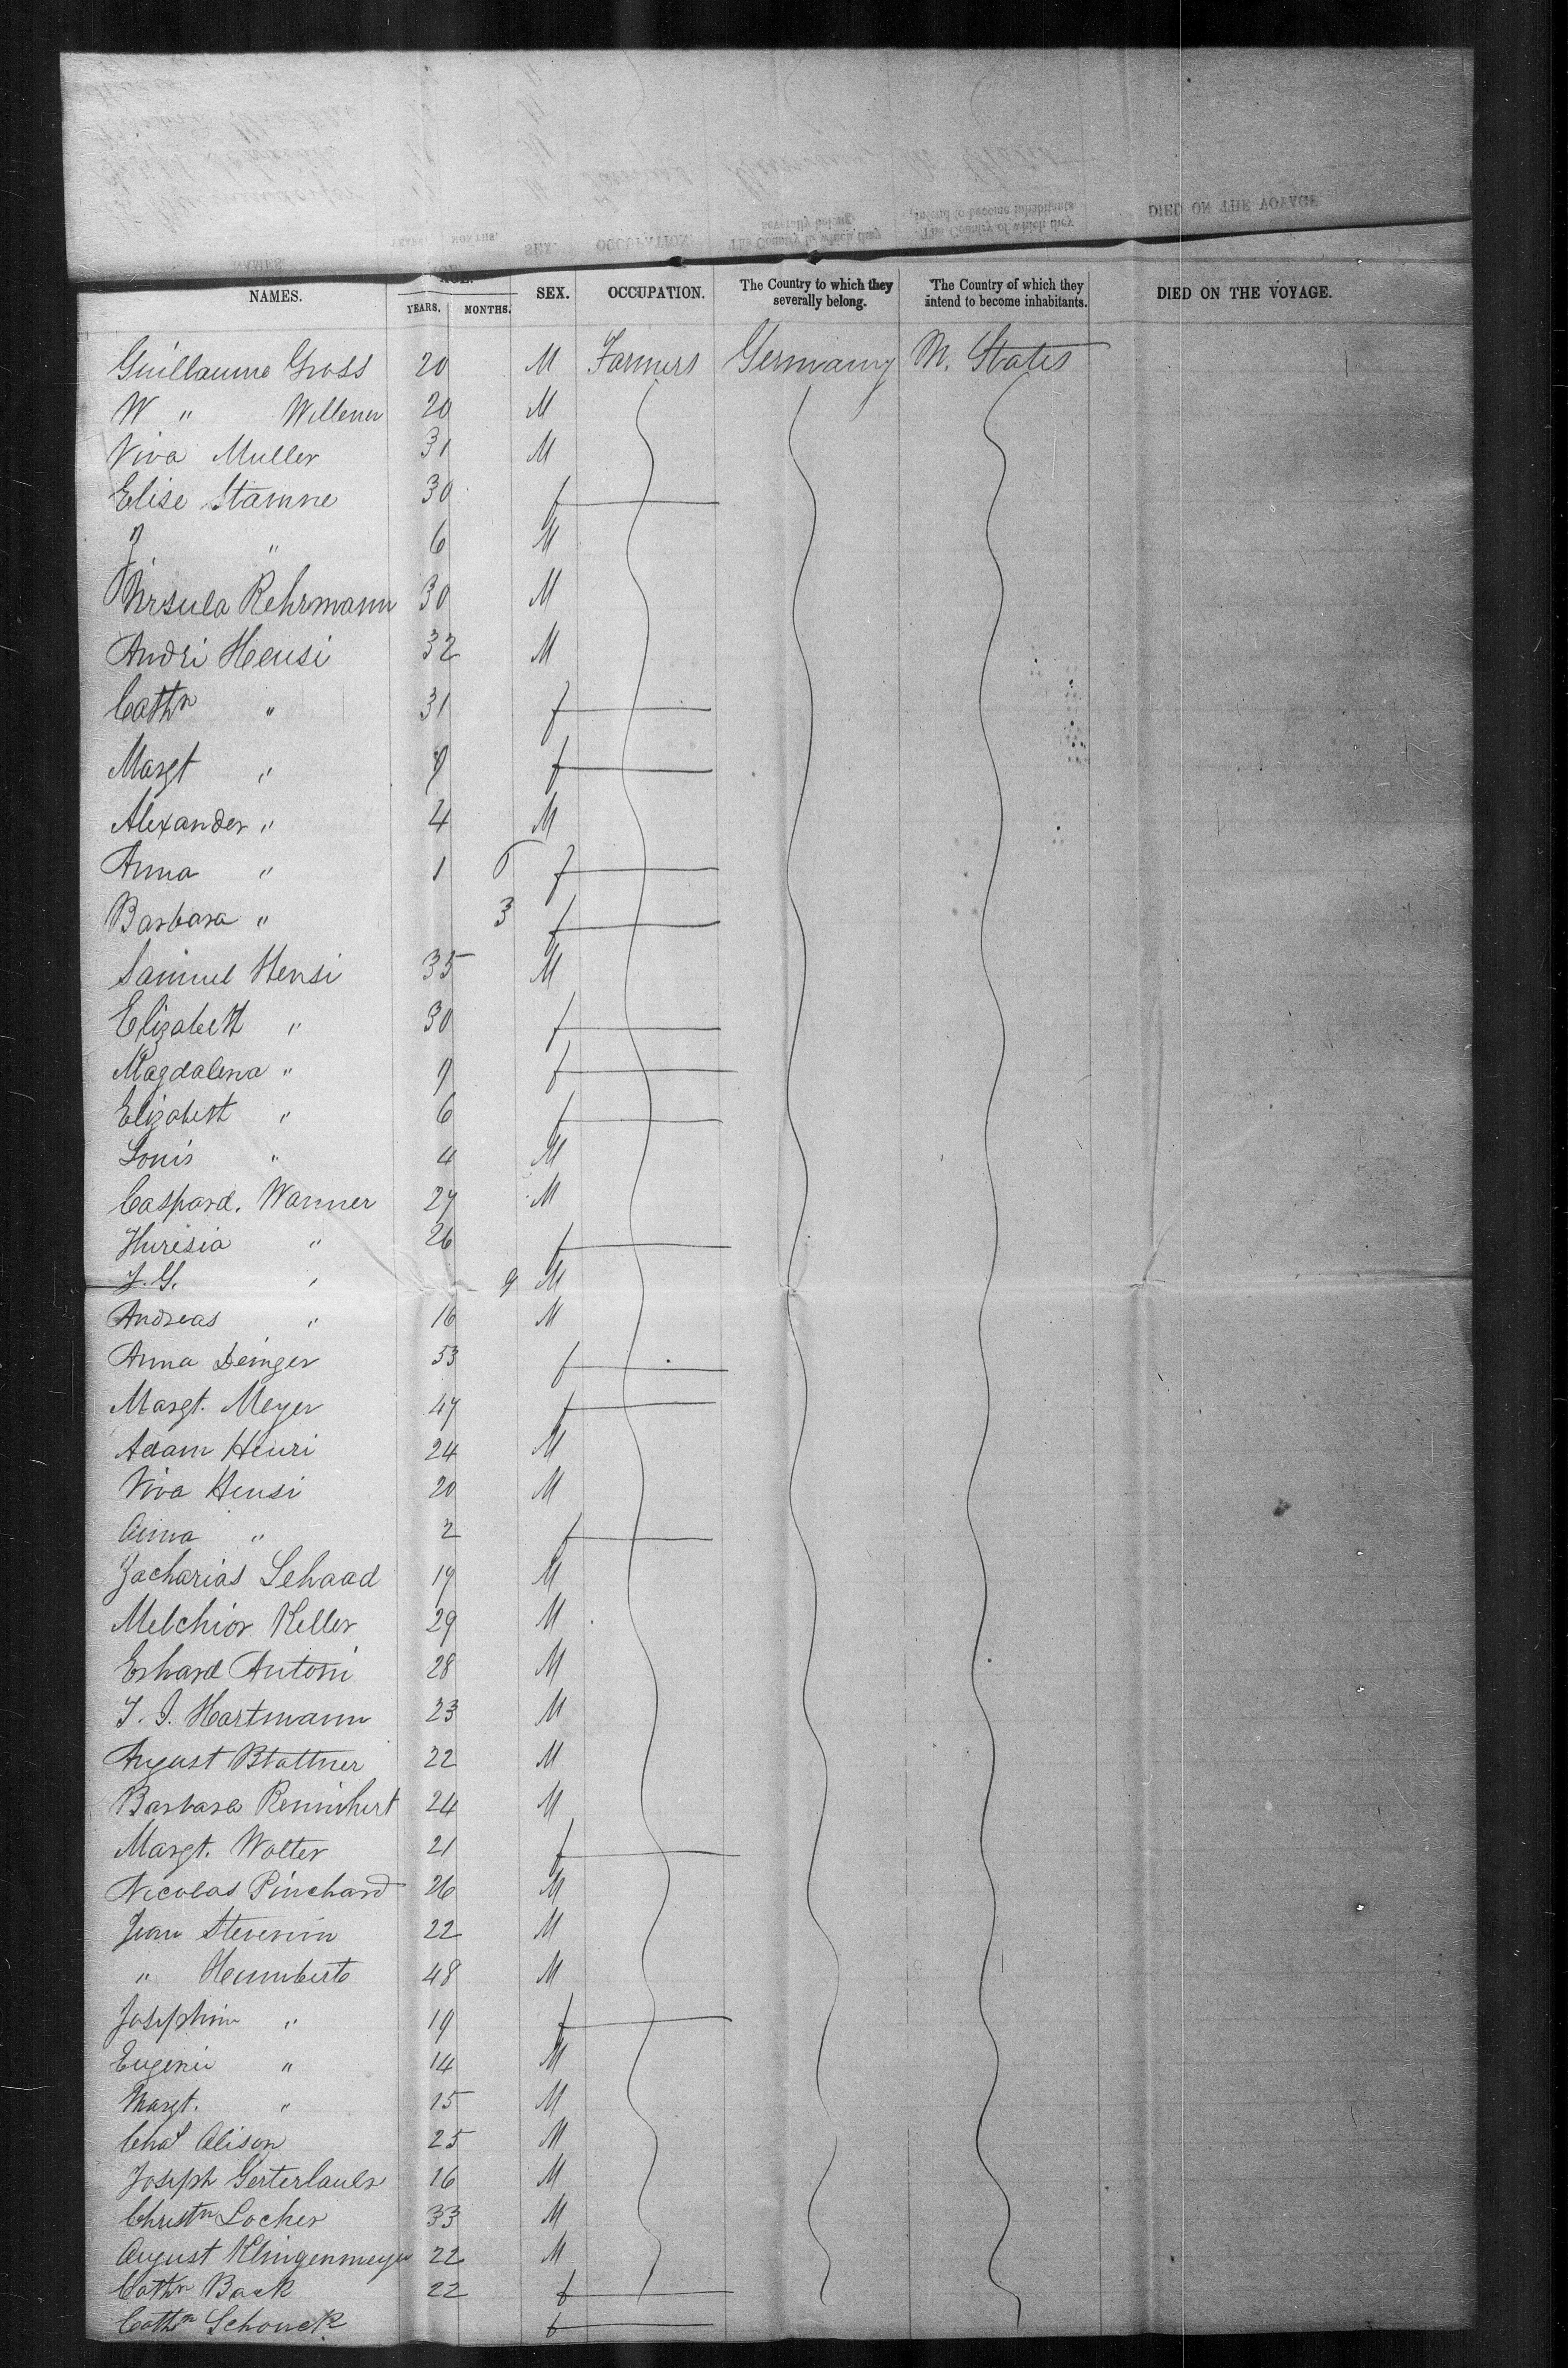 NAMES. AGE. YEARS. MONTHS. SEX. OCCUPATION. The Country to which they severally belong. The Country of which they intend to become inhabitants. DIED ON THE VOYAGE.
Guillaume Gross 20 M Farmers Germany U. States
W " Willener 20 M
Viva Muller 31 M
Elise Stamne 30 f
J " 6 M
Ursula Rehrmann 30 M
Andri Heusi 32 M
Cathn " 31 f
Margt " 9 f
Alexander " 4 M
Anna " 1 6 f
Barbara " 3 f
Samuel Hensi 35 M
Elizabeth " 30 f
Magdalena " 9 f
Elizabeth " 6 f
Louis " 4 M
Caspard. Wanner 27 M
Thuresia " 26 f
J. G. " 9 M
Andreas " 16 M
Anna Deinger 53 f
Margt. Meyer 47 f
Adam Heuri 24 M
Viva Heusi 20 M
Anna " 2 f
Zacharias Schaad 19 M
Melchior Keller 29 M
Erhard Antoni 28 M
J. J. Hartmann 23 M
August Blattner 22 M
Barbara 24 M
Margt. Wolter 21 f
Nicolas Pinchard 26 M
Jean Stevenin 22 M
" Humberto 48 M
Josephin " 19 f
Eugenie " 14 M
Margt. " 15 M
Chas Alison 25 M
Joseph 16 M
Christn Locher 33 M
August Klingenmeyer 22 M
Cathn Back 22 f
Cathn Schouck f